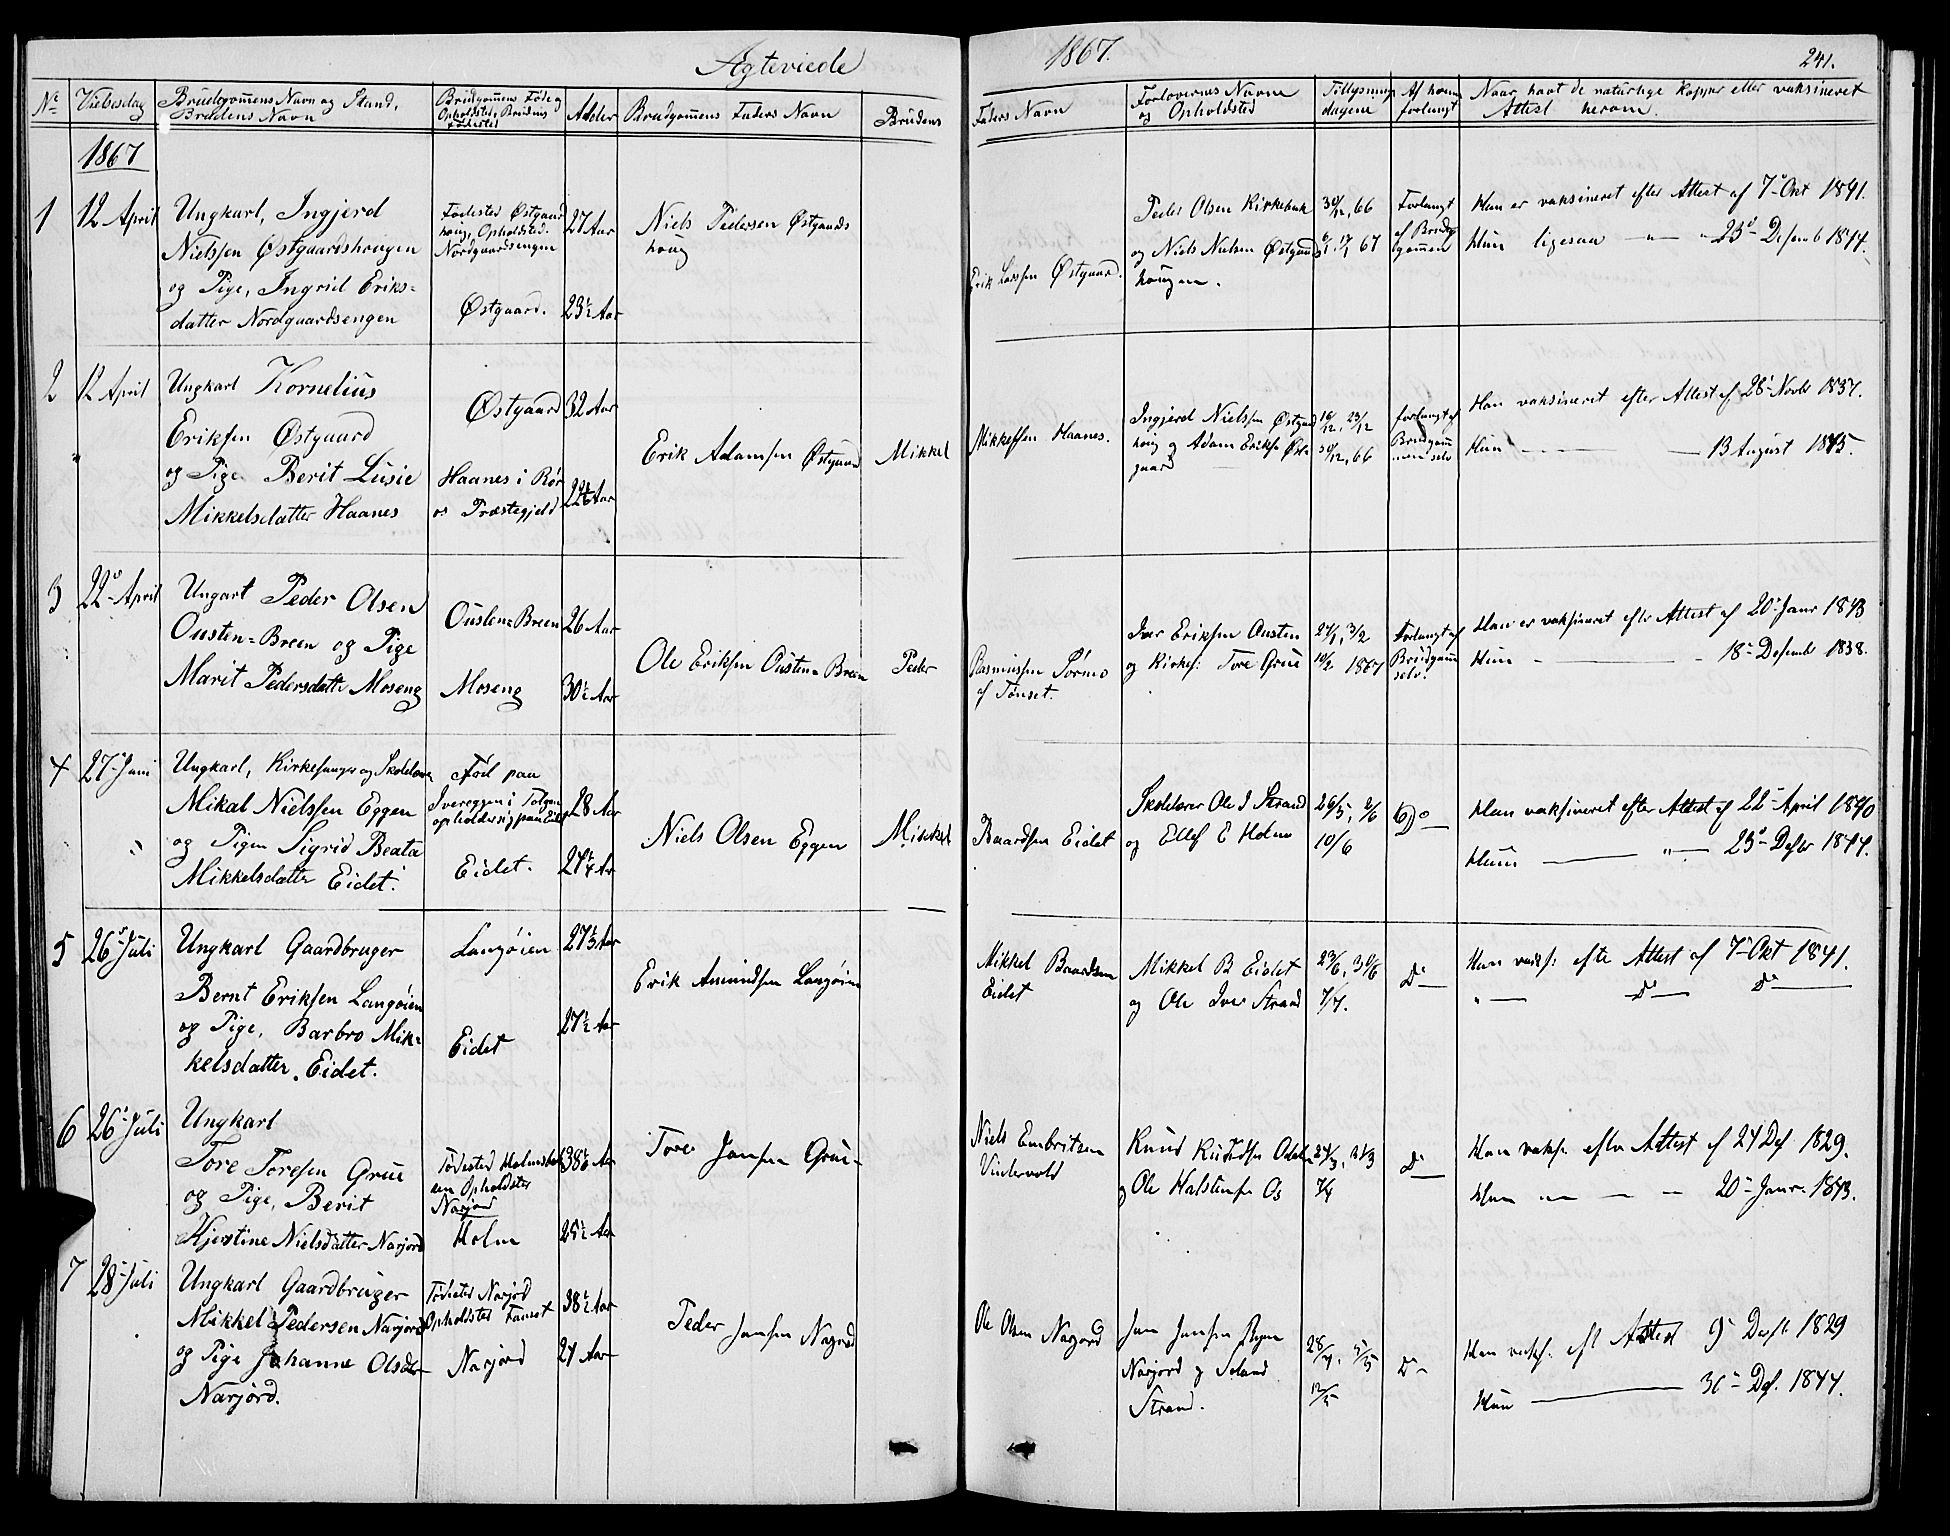 Ægteviede
1867.
241.
No
Vielsesdag
Brudgommens Navn og Stand,
Brudens Navn
Brudgommens Føde og
Opholdsted, Brudens
Fødested
Alder
Brudgommens Faders Navn
Brudens
Faders Navn
Forlovernes Navne
og Opholdsted
Tillysnings
dagene
Af hvem
forlangt
Naar havt de naturlige Kopper eller vaksineret
Attest herom.
1867
1
12 April
Ungkarl, Ingjerd
Nielssen Østgaardshougen
og Pige, Ingrid Eriks=
datter Nordgaardsengen
Fødested Østgaard
houg, Opholdsted.
Nordgaardsengen
Østgaard.
27 Aar
23½ Aar
Niels Pedersen Østgaards
houg
Erik Larssen Østgaard.
Peder Olsen Kirkebak
og Niels Nielsen Østgaards
hougen.
30/12, 66
6/1, 67
Forlangt
af Brud
gommen
Han er vaksineret efter Attest af 7de Okt 1841.
Hun ligesaa — " — 23de Desemb 1844.
2
12 April
Ungkarl Kornelius
Eriksen Østgaard
og Pige Berit Lusie
Mikkelsdatter Haanes
Østgaard
Haanes i Rør
os Præstegjeld
32 Aar
22 Aar
Erik Adamsen Østgaard
Mikkel
Mikkelsen Haanes.
Ingjerd Nielssen Østgaard
houg og Adam Eriksen Øst
gaard
16/12, 23/12
30/12, 66
forlangt af
Brudgom
men selv
Han vaksineret efter Attest af 28de Novbr 1837.
Hun — — 13 August 1845.
3
22de April
Ungart Peder Olsen
Ousten=Breen og Pige
Marit Pedersdatte Moseng
Ousten=Breen
Moseng
26 Aar
30½ Aar
Ole Eriksen Ousten=Breen
Peder
Rasmussen Tørmo
af Tønset.
Iver Eriksen Ousten
og Kirkes: Tore Grue
27/1, 3/2
10/2 1867
Forlangt af
Brudgom
selv.
Han er vaksineret eftr Attest af 20de Janr 1843
Hun — — 18de Desembr 1838.
4
27de Juni
Ungkarl, Kirkesanger og Skolelærer
Mikal Nielssen Eggen
og Pigen Sigrid Beata
Mikkelsdatter Eidet.
Fød paa
Ivereggen i Tolgen
opholder sig paa Eidet
Eidet.
28 Aar
24¼ Ar
Niels Olsen Eggen
Mikkel
Baardsen Eidet
Skolelærer Ole I Strand
og Ellef E Holm
26/5, 2/6
10/6
Do —
Han vaksineret efter Attest af 22de April 1840
Hun — " — 23de Desbr 1844.
5
26de Juli
Ungkarl Gaardbruger
Bernt Eriksen Langøien
og Pige, Barbro Mik=
kelsdatter Eidet.
Langøien
Eidet
27⅓ Aar
27½ Aar
Erik Amundsen Langøien
Mikkel Baardsen
Eidet
Mikkel B Eidet
og Ole Iver Strand
23/6, 30/6
7/7.
Do —
Han vaks: efte Attest af 7de Okt 1841.
" — Do — Do —
6
26de Juli
Ungkarl
Tore Toresen Grue
og Pige, Berit
Kjerstine Nielsdatter Narjord
Opholdster
Narjord
Holm
38 Aar
25½ Aar
Tore Jonsen Grue
Niels Embritsen
Vintervold
Knud Knudsen
og Ole Halstensen Os
24/3, 31/3
7/4
Do —
Han vaks. efter Attest af 24 Des 1829.
Hun " — — — 20de Janr. 1843.
7
28de Juli
Ungkarl Gaardbruger
Mikkel Pedersen Narjord
og Pige Johanne Olsdtr
Narjord.
Fødested Narjord
Opholdster
Narjord
38½ Aar
24 Aar
Peder Jonsen Narjord
Ole Olsen Narjord
Jon Jonsen
Narjord og
Strand.
28/4, 5/5
12/5
Do —
Han vaks. eft Attest 9de Desbr 1829
Hun — 30de Des. 1844.